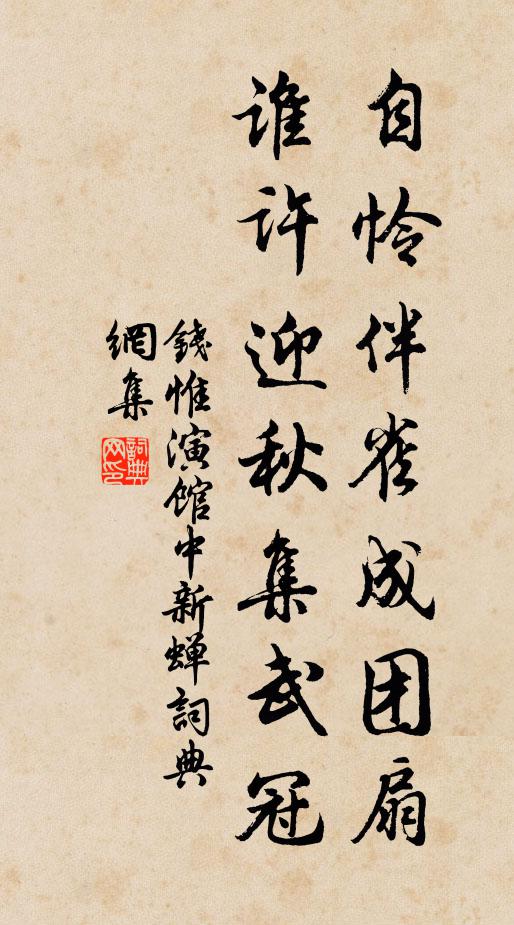 自怜伴雀成团扇
谁許迎秋集武冠
錢惟演馆中新蝉詞典
網集
詞典
网印